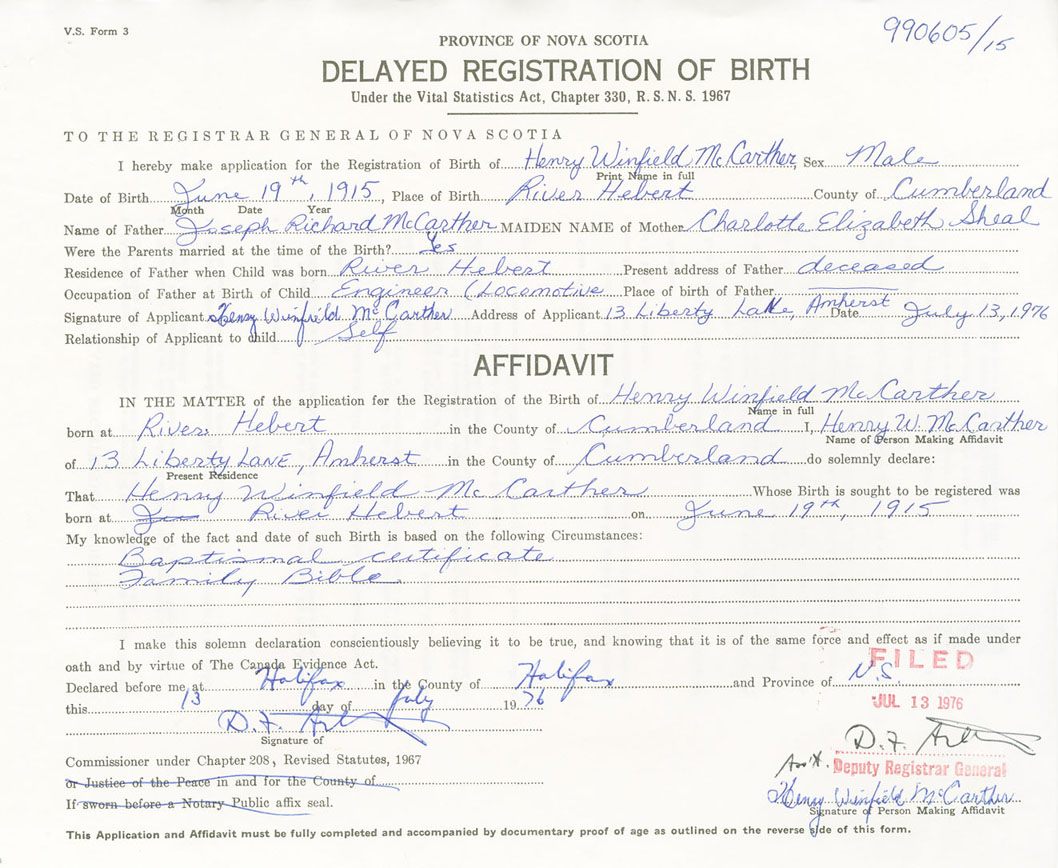 V.S. Form 3
990605/15
PROVINCE OF NOVA SCOTIA
DELAYED REGISTRATION OF BIRTH
Under the Vital Statistics Act, Chapter 330, R.S.N.S. 1967
TO THE REGISTRAR GENERAL OF NOVA SCOTIA
I hereby make application for the Registration of Birth of Henry Winfield McCarther, Sex Male
Print Name in full
Date of Birth June 19th, 1915, Place of Birth River Hebert County of Cumberland
Month Date Year
Name of Father Joseph Richard McCarther MAIDEN NAME of Mother Charlotte Elizabeth Sheal
Were the Parents married at the time of the Birth? Yes
Residence of Father when Child was born River Hebert Present address of Father deceased
Occupation of Father at Birth of Child Engineer (Locomotive Place of birth of Father
Signature of Applicant Henry Winfield McCarther Address of Applicant 13 Liberty Lane, Amherst Date July 13, 1976
Relationship of Applicant to child Self
AFFIDAVIT
IN THE MATTER of the application for the Registration of the Birth of Henry Winfield McCarther
Name in full
born at River Hebert in the County of Cumberland I, Henry W. McCarther
Name of Person Making Affidavit
of 13 Liberty LANE, Amherst in the County of Cumberland do solemnly declare:
Present Residence
That Henry Winfield McCarther Whose Birth is sought to be registered was
born at River Hebert on June 19th, 1915
My knowledge of the fact and date of such Birth is based on the following Circumstances:
Baptismal certificate
Family Bible
I make this solemn declaration conscientiously believing it to be true, and knowing that it is of the same force and effect as if made under
oath and by virtue of The Canada Evidence Act.
FILED
Declared before me at Halifax in the County of Halifax and Province of N.S.
this 13 day of July 1976
JUL 13 1976
D.F.
Signature of
D.F.
Commissioner under Chapter 208, Revised Statutes, 1967
Ass't. Deputy Registrar General
or Justice of the Peace in and for the County of
Henry Winfield McCarther
If sworn before a Notary Public affix seal.
Signature of Person Making Affidavit
This Application and Affidavit must be fully completed and accompanied by documentary proof of age as outlined on the reverse side of this form.